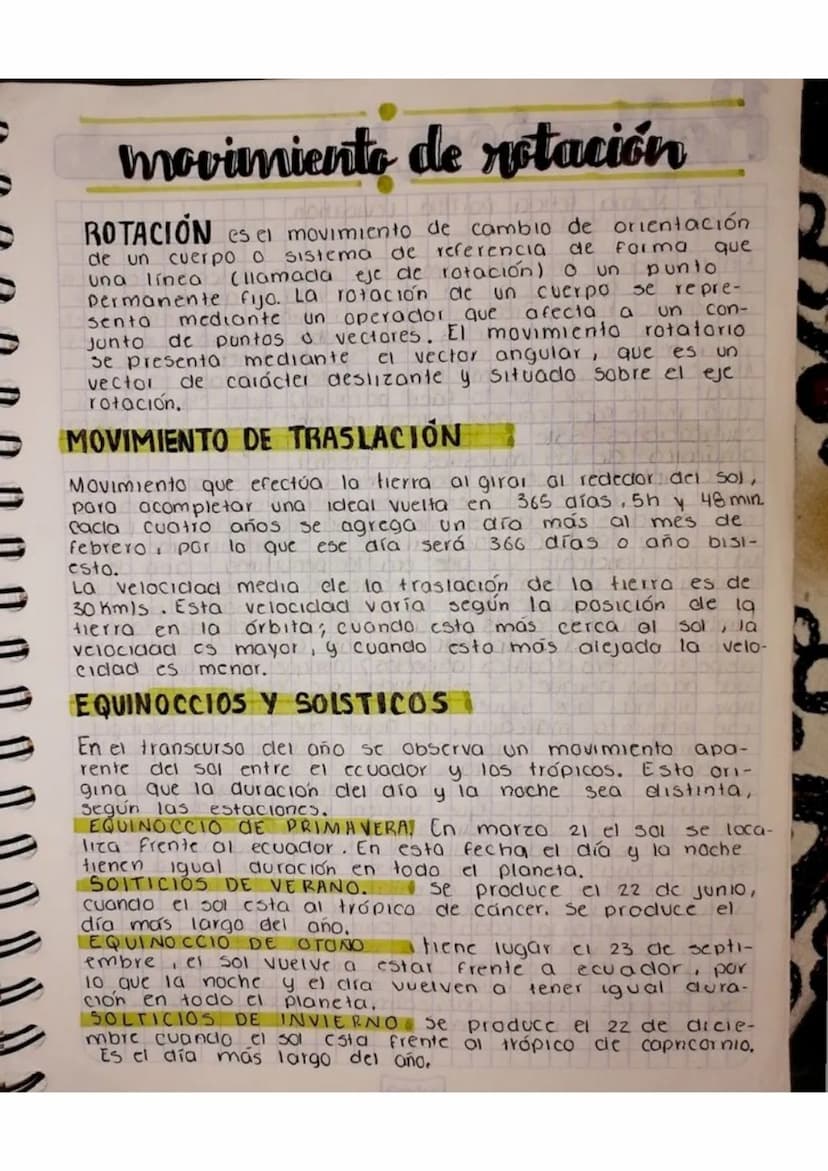 movimiento de rotación
ROTACIÓN es el movimiento de cambio de orientación
de un cuerpo o sistema de referencia de forma que
una línea (llamada eje de rotación) o un punto
permanente fijo. La rotación de un cuerpo se repre-
senta mediante un operador que afecta a un con-
junto de puntos o vectores. El movimiento rotatorio
se presenta mediante el vector angular, que es un
vector de carácter deslizante y situado sobre el eje
rotación.
MOVIMIENTO DE TRASLACIÓN
Movimiento que efectúa la tierra al girar al rededor del sol,
para acompletar una ideal vuelta en 365 días, 5h y 48 min
cada cuatro años se agrega un día más al mes de
febrero, por lo que ese día será 366 días o año bisi-
esto.
La velocidad media de la traslación de la tierra es de
30 Km/s. Esta velocidad varía según la posición de la
tierra en la órbita; cuando esta más cerca al sol, la
velocidad es mayor, y cuando esta más alejada la velo-
cidad es menor.
EQUINOCCIOS Y SOLSTICOS
En el transcurso del año se observa un movimiento apa-
rente del sol entre el ecuador y los trópicos. Esto ori-
gina que la duración del día y la noche sea distinta,
según las estaciones.
EQUINOCCIO DE PRIMAVERA, En marzo 21 el sol se loca-
liza frente al ecuador. En esta fecha el día y la noche
tienen igual duración en todo el planeta.
SOLTICIOS DE VERANO. Se produce el 22 de junio,
cuando el sol esta al trópico de cáncer. Se produce el
día más largo del año.
EQUINOCCIO DE OTOÑO tiene lugar el 23 de septi-
embre, el sol vuelve a estar frente a ecuador, por
lo que la noche y el día vuelven a tener igual dura-
ción en todo el planeta.
SOLTICIOS DE INVIERNO Se produce el 22 de dicie-
mbre cuando el sol esta frente al trópico de capricornio.
Es el día más largo del año.